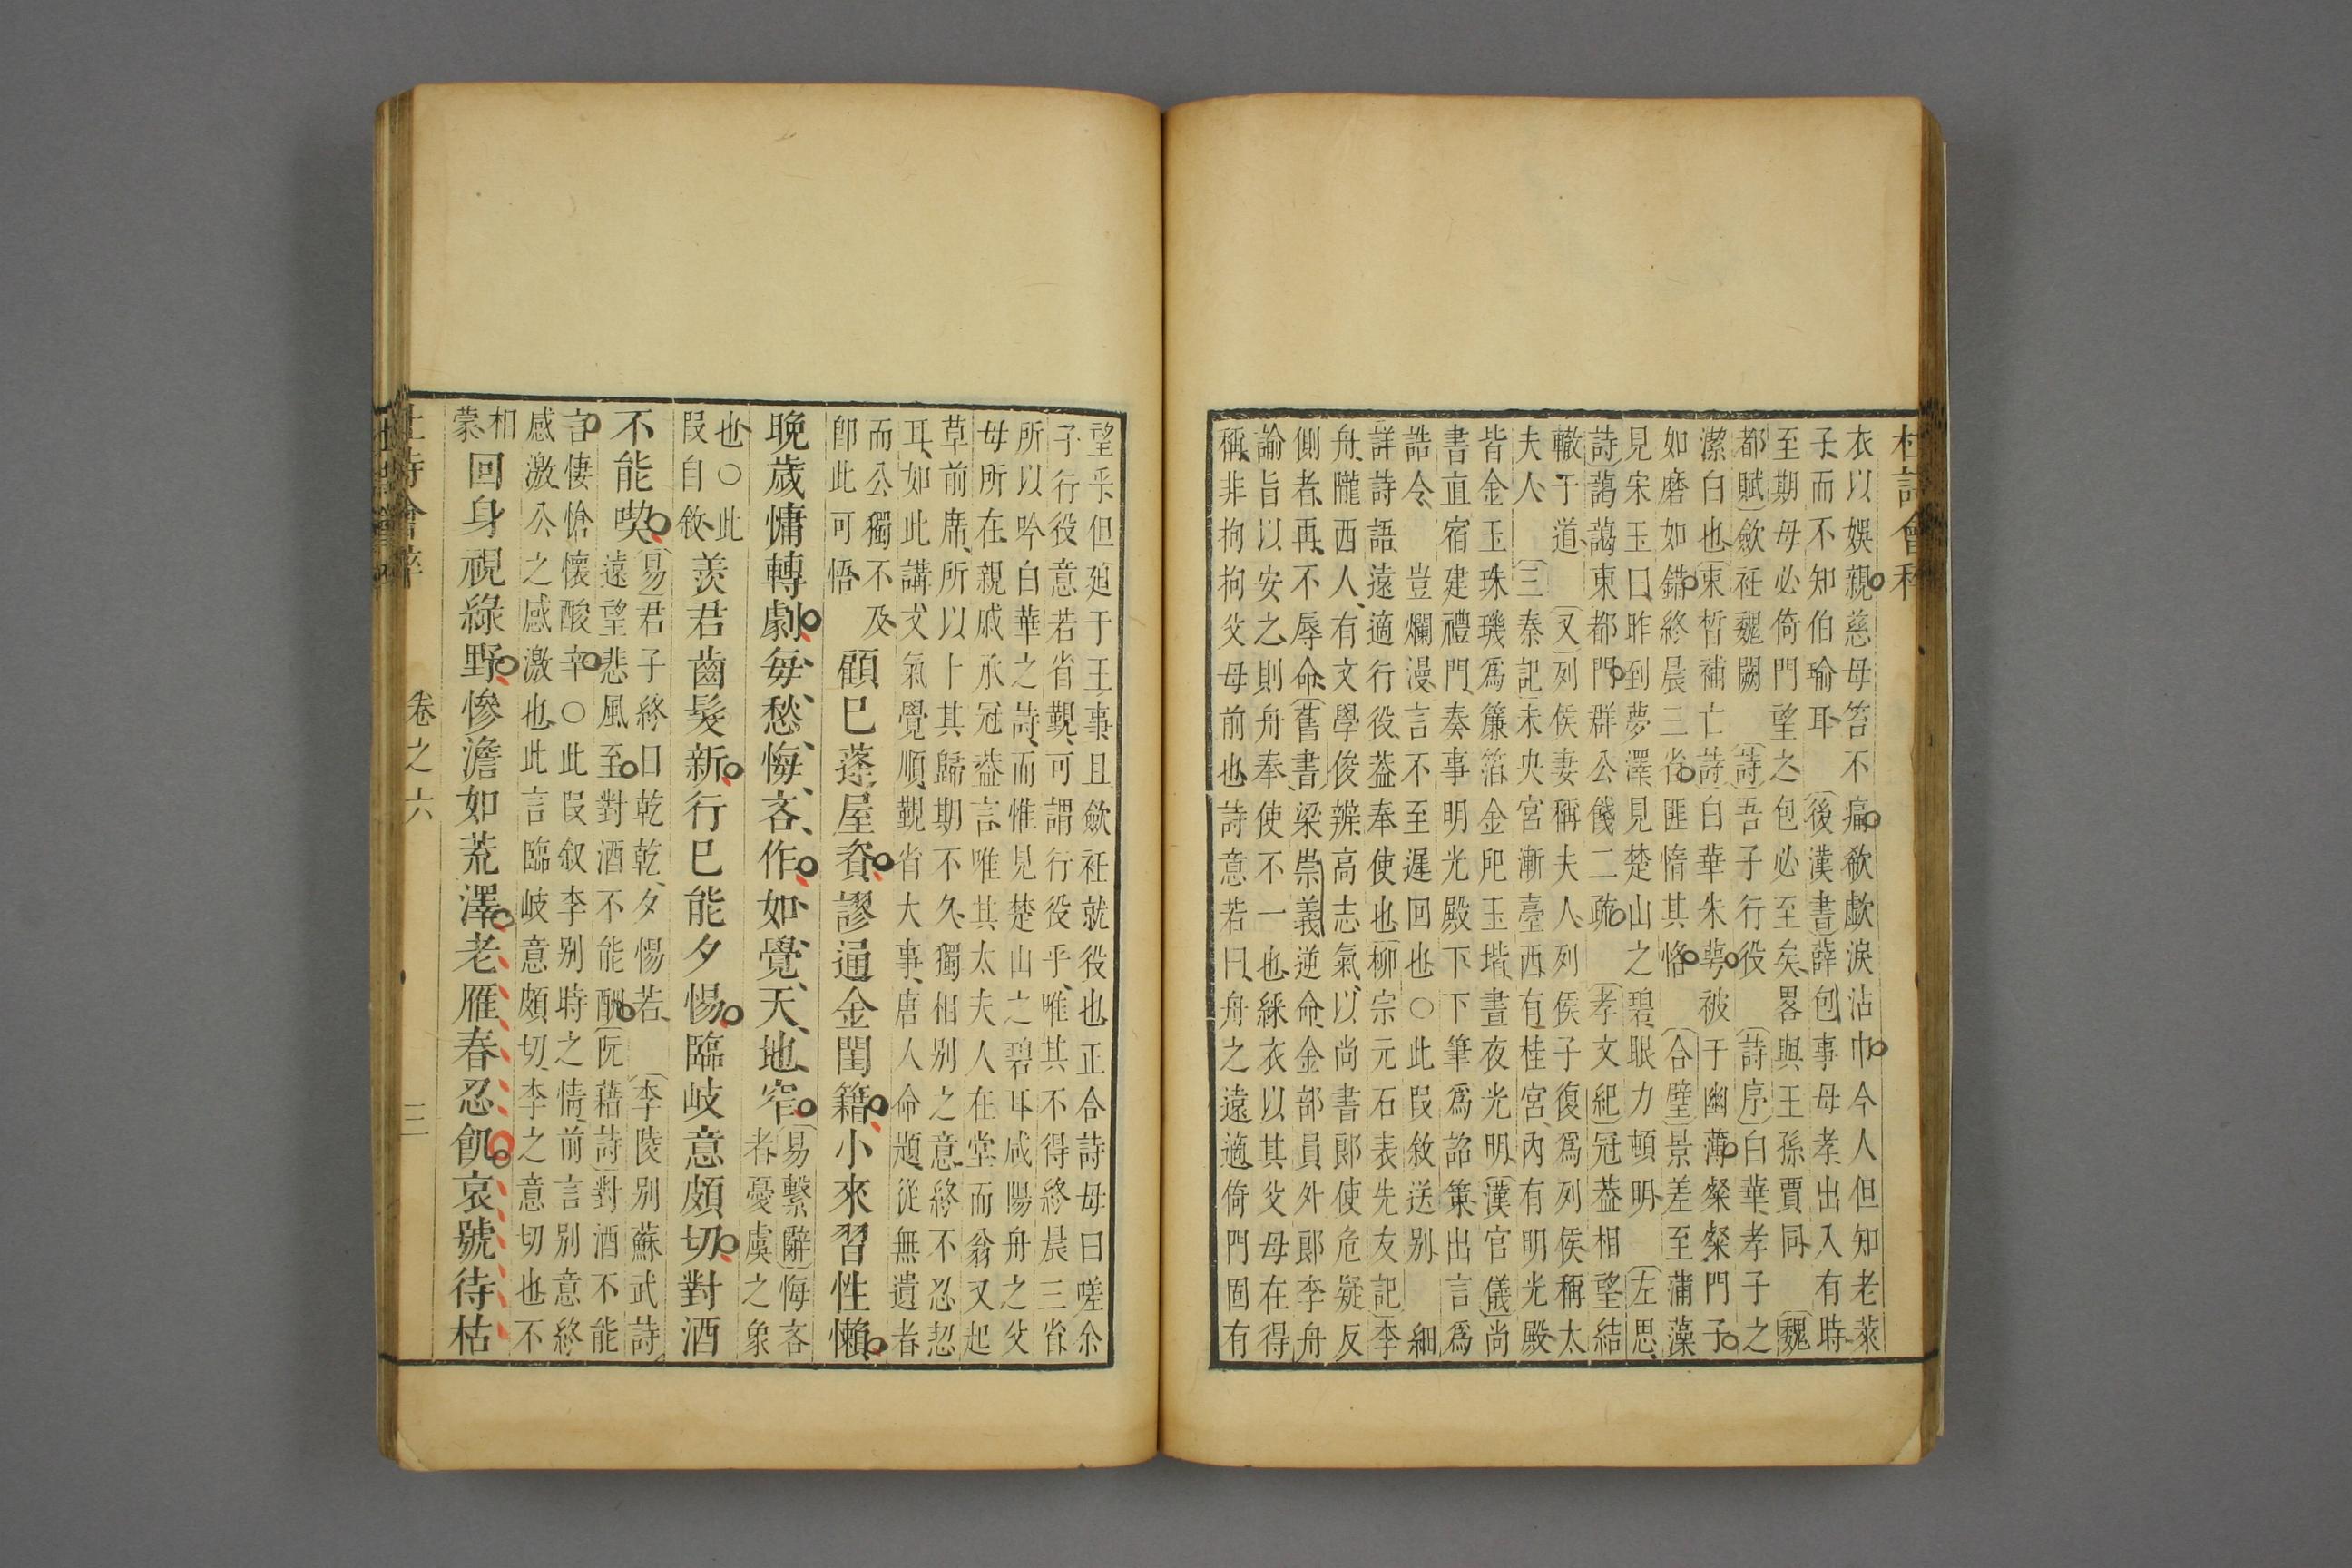 衣以娛親慈母笞不痛欷歔淚沾巾今人但知老萊
子而不知伯瑜耳　後漢書薛包事母孝出入有時
至期母必倚門望之包必至矣畧與王孫賈同　魏
都賦斂衽魏闕　詩吾子行役　詩序白華孝子之
潔白也束皙補亡詩白華朱萼被于幽薄粲粲門子
如磨如錯終晨三省匪惰其恪　合璧景差至蒲藻
見宋玉曰昨到夢澤見楚山之碧眼力頓明　左思
詩藹藹東都門群公餞二疏　孝文紀冠葢相望結
轍于道　又列侯妻稱夫人列侯子復爲列侯稱太
夫人　三秦記未央宮漸臺西有桂宮內有明光殿
皆金玉珠璣爲簾箔金戺玉堦晝夜光明漢官儀尚
書直宿建禮門奏事明光殿下下筆爲詔策出言爲
誥令　豈爛漫言不至遲回也○此叚敘送别　細
詳詩語遠適行役葢奉使也柳宗元石表先友記李
舟隴西人有文學俊辨高志氣以尚書郎使危疑反
側者再不辱命舊書梁崇義逆命金部員外郎李舟
諭旨以安之則舟奉使不一也綵衣以其父母在得
稱非拘拘父母前也詩意若曰舟之遠適倚門固有
望乎但廹于王事且斂衽就役也正合詩母曰嗟余
子行役意若省覲可謂行役乎唯其不得終晨三省
所以吟白華之詩而惟見楚山之碧耳咸陽舟之父
母所在親戚承冠葢言唯其太夫人在堂而翁又起
草前席所以卜其歸期不久獨相别之意終不忍恝
耳如此講文氣覺順覲省大事唐人命題從無遺者
而公獨不及
卽此可悟　顧巳蓬屋資謬通金閨籍小來習性懶
晚歲慵轉劇每愁悔吝作如覺天地窄易繫辭悔吝
者憂虞之象
也○此
叚自敘　羨君齒髮新行巳能夕惕臨岐意頗切對酒
不能喫易君子終日乾乾夕惕若　李陵别蘇武詩
遠望悲風至對酒不能酬阮藉詩對酒不能
言悽愴懷酸辛○此叚叙李别時之情前言别意終
感激公之感激也此言臨岐意頗切李之意切也不
相
蒙　回身視綠野慘澹如荒澤老雁春忍飢哀號待枯
卷之六
三